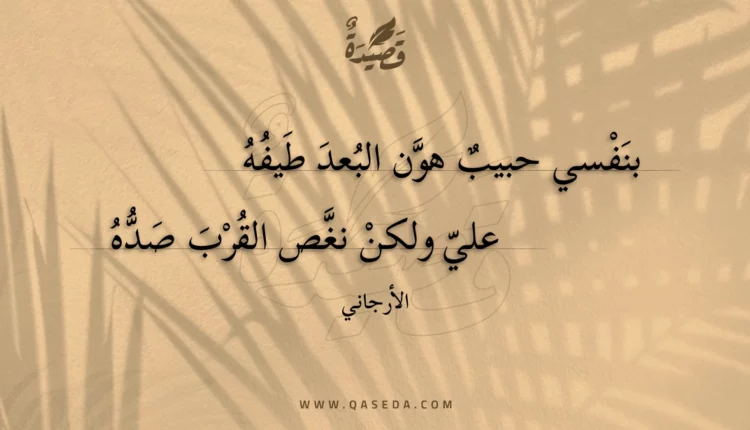 قَصِيدَةٌ
بنَفْسي حبيبٌ هوَّن البُعدَ طَيفُهُ
عليّ ولكنْ نغَّص القُرْبَ صَدُّهُ
الأرجاني
WWW.QASEDA.COM